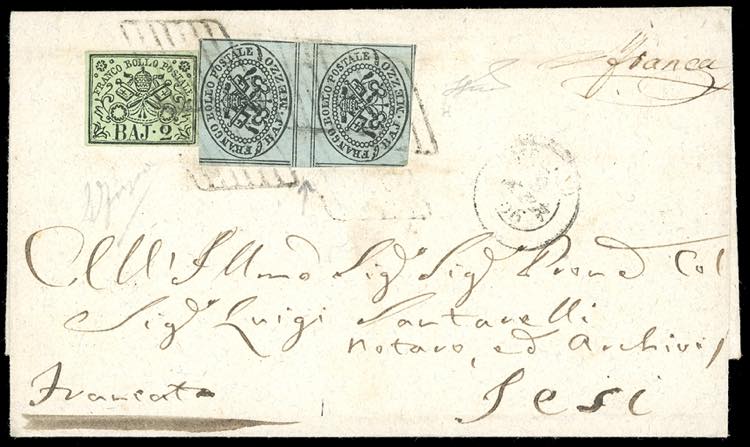 FRANCO BOLLO POSTALE
BAJ. 2
FRANCO BOLLO POSTALE
BAJ. MEZZO
FRANCO BOLLO POSTALE
BAJ. MEZZO
franca
All' Illmo Sigr Sigr Prone Col
Sigr Luigi Santarelli
Notaro, ed Archivi
Francata
Jesi